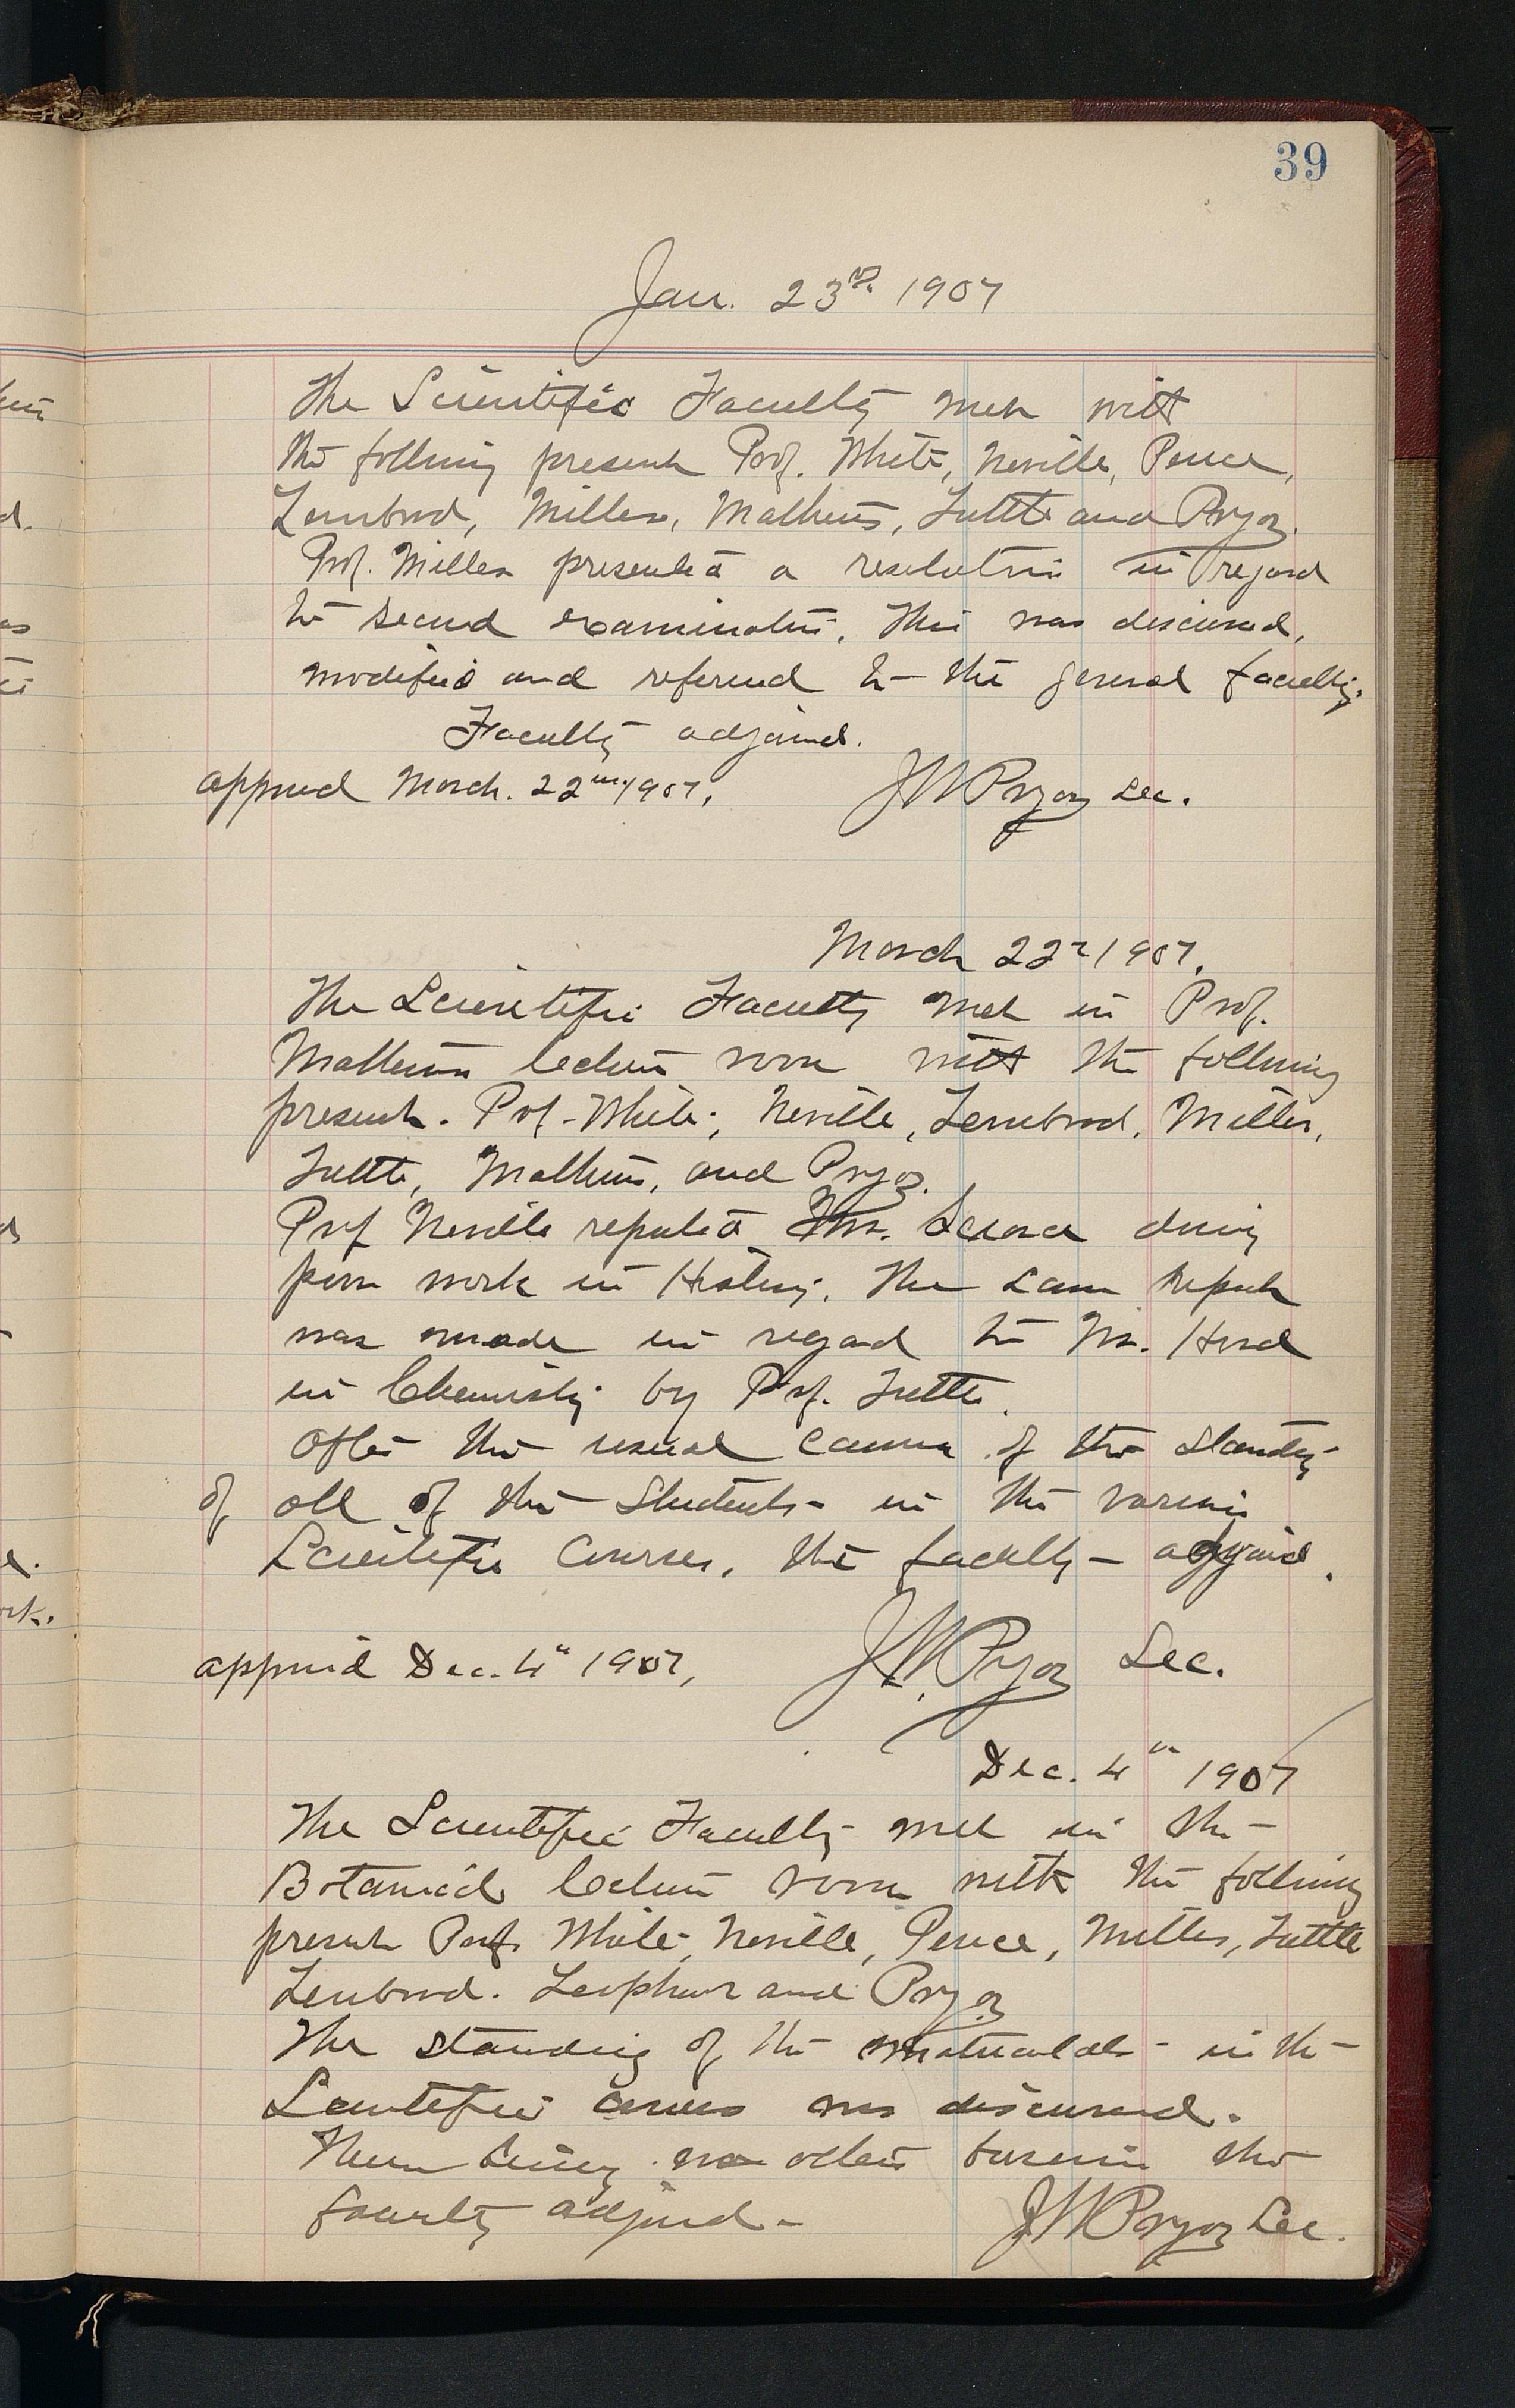 39
Jan. 23rd. 1907
The Scientific Faculty met with
the following present Prof. White, Neville, Pence,
Zembrod, Miller, Mathews, Tuttle and Pryor.
Prof. Miller presented a resolution in regard
to second examination. This was discussed,
modified and refered to the general faculty.
Faculty adjourned.
approved March. 22nd 1907.
JW Pryor Sec.
March 22n 1907.
The Scientific Faculty met in Prof.
Mathews lecture room with the following
present. Prof. White, Neville, Zembrod, Miller,
Tuttle, Mathews, and Pryor.
Prof Neville reported doing
poor work in History. The same report
was made in regard to Mr. Hurd
in Chemistry by Prof. Tuttle.
After the usual canvas of the standing
of all of the students in the various
Scientific Courses, the faculty adjourned.
approved Dec. 4th 1907,
J.W. Pryor Sec.
Dec. 4th 1907
The Scientific Faculty met in the
Botanical lecture room with the following
present Prof. White, Neville, Pence, Miller, Tuttle
Zembrod. and Pryor
The standing of the matriculates in the
Scientific courses was discussed.
There being no other business the
faculty adjourned.
JW Pryor Sec.